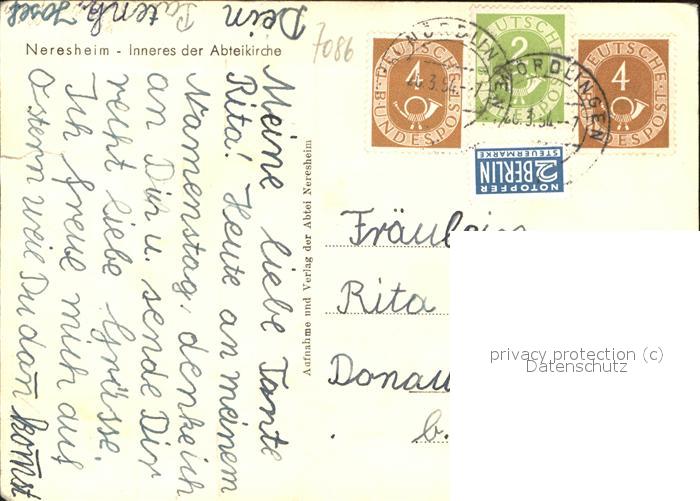 Neresheim - Inneres der Abteikirche
7086
Meine liebe Tante
Rita! Heute an meinem
Namenstag, denke ich
an Dich u. sende Dir
recht liebe Grüsse.
Ich freue mich auf
Ostern weil Du dan komst
Dein
Patenk. Josef
Aufnahme und Verlag der Abtei Neresheim
DEUTSCHE BUNDESPOST
4
DEUTSCHE BUNDESPOST
2
DEUTSCHE BUNDESPOST
4
NÖRDLINGEN
NÖRDLINGEN
NOTOPFER
2 BERLIN
STEUERMARKE
Fräulein
Rita
Donau
b.
privacy protection (c)
Datenschutz